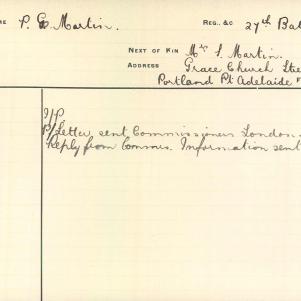 ME P. G. Martin. REG., &C 27th Bat
NEXT OF KIN Mrs S. Martin.
ADDRESS Grace Church Stre
Portland Pt. Adelaide
P/Letter, sent Commissioners London
Reply from Commrs. Information sent